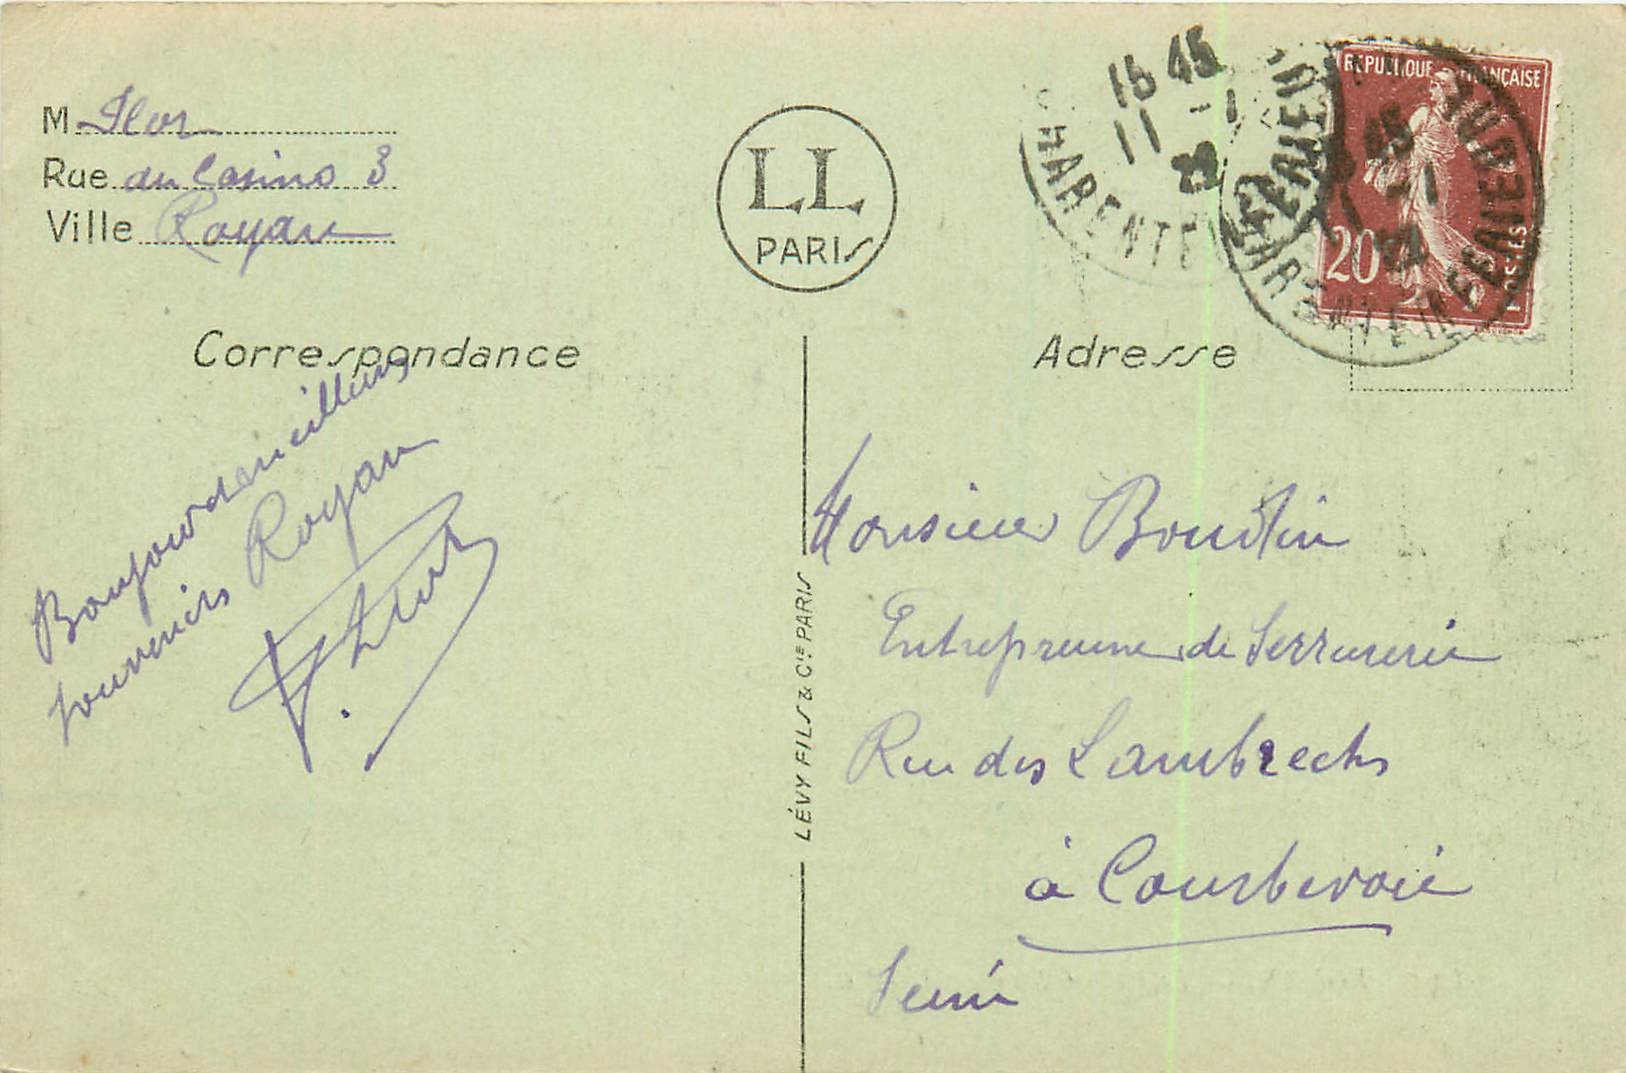 M Flor
Rue du Casino 3
Ville Royan
LL
PARIS
15 45
11 -1
22
CHARENTE INF
REPUBLIQUE FRANÇAISE
20
POSTES
Correspondance
Bonjour de meilleurs
souvenirs Royan
LÉVY FILS & Cie PARIS
Adresse
Monsieur Boudin
Entrepreneur de Serrurerie
Rue des Lambrechs
à Courbevoie
Seine